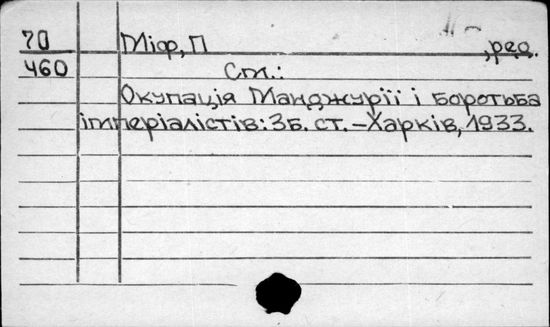 70 Міф, П ,ред.
460 Ст.:
Окупація Манджурії і боротьба
імперіалістів: Зб. ст. – Харків, 1933.